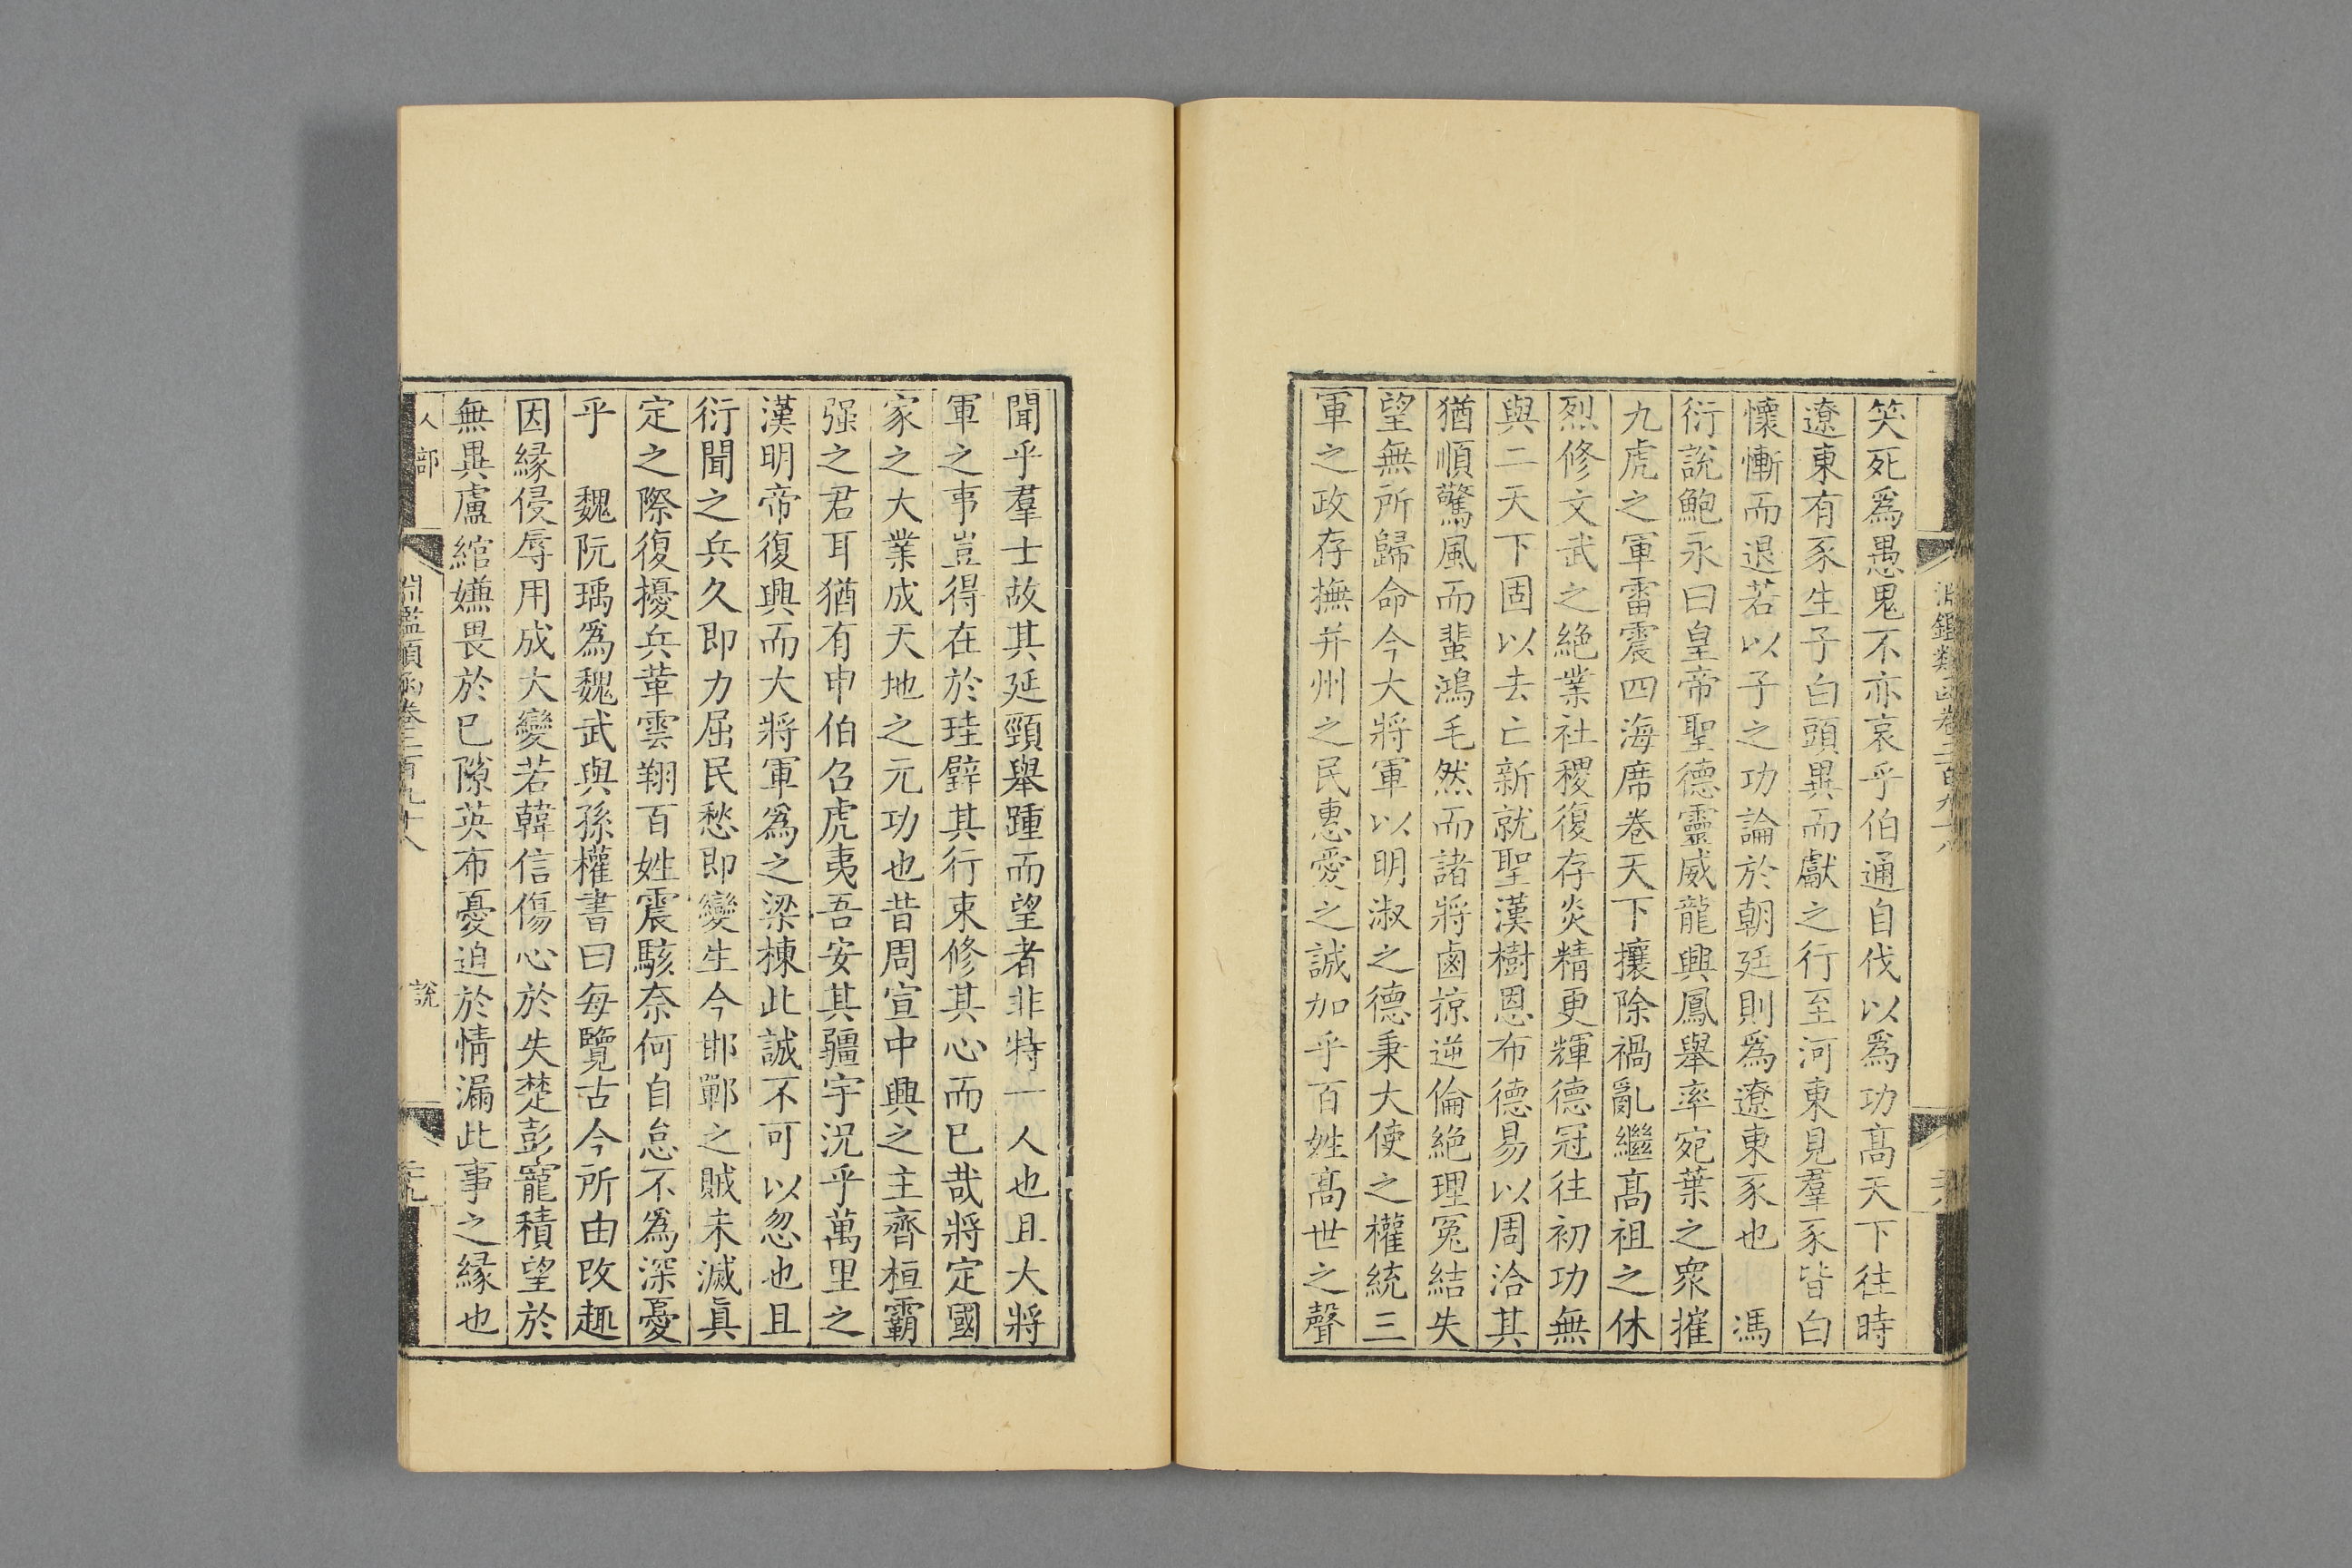 笑死爲愚鬼不亦哀乎伯通自伐以爲功髙天下往時
遼東有豕生子白頭異而獻之行至河東見羣豕皆白
懷慚而退若以子之功論於朝廷則爲遼東豕也　馮
衍說鮑永曰皇帝聖德靈威龍興鳳舉率宛葉之衆摧
九虎之軍雷震四海席卷天下攘除禍亂繼髙祖之休
烈修文武之絶業社稷復存炎精更輝德冠往初功無
與二天下固以去亡新就聖漢樹恩布德易以周洽其
猶順驚風而蜚鴻毛然而諸將鹵掠逆倫絶理冤結失
望無所歸命今大將軍以明淑之德秉大使之權統三
軍之政存撫并州之民惠愛之誠加乎百姓髙世之聲
聞乎羣士故其延頸舉踵而望者非特一人也且大將
軍之事豈得在於珪璧其行束修其心而已哉將定國
家之大業成天地之元功也昔周宣中興之主齊桓霸
强之君耳猶有申伯召虎夷吾安其疆宇況乎萬里之
漢明帝復興而大將軍爲之梁棟此誠不可以忽也且
衍聞之兵久即力屈民愁即變生今邯鄲之賊未滅眞
定之際復擾兵革雲翔百姓震駭奈何自怠不爲深憂
乎　魏阮瑀爲魏武與孫權書曰每覽古今所由改趣
因緣侵辱用成大變若韓信傷心於失楚彭寵積望於
無異盧綰嫌畏於已隙英布憂迫於情漏此事之緣也
人部
淵鑑類函卷二百九十八
說